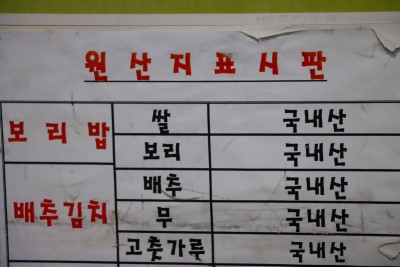 원산지표시판
보리밥 쌀 국내산
보리 국내산
배추김치 배추 국내산
무 국내산
고춧가루 국내산